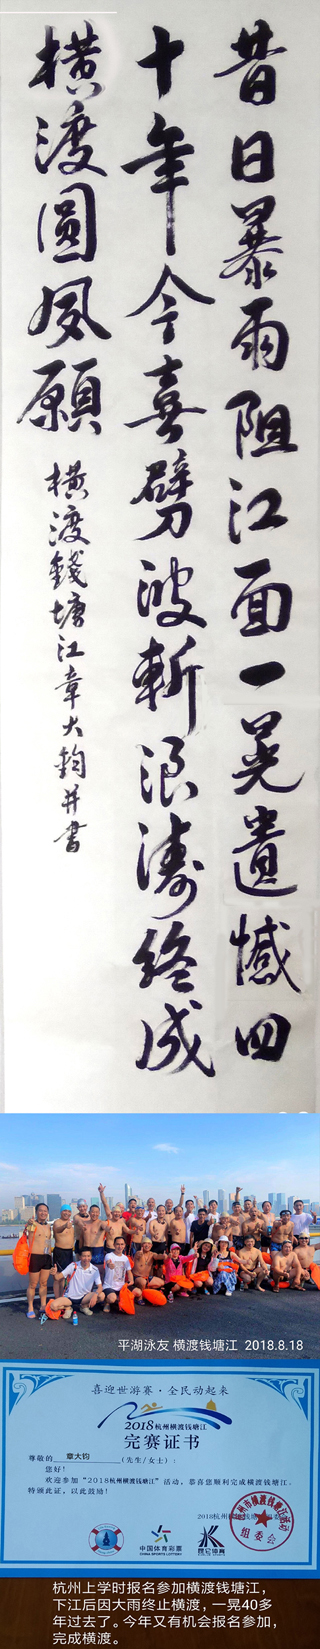 昔日暴雨阻江面一晃遗憾四
十年今喜劈波斬浪濤终成
橫渡圓夙願
橫渡錢塘江章大鈞并書
平湖泳友 横渡钱塘江 2018.8.18
喜迎世游赛·全民动起来
2018杭州横渡钱塘江
完赛证书
尊敬的 章大钧 (先生/女士):
您好!
欢迎参加“2018杭州横渡钱塘江”活动,恭喜您顺利完成横渡钱塘江。
特颁此证,以此鼓励!
中国体育彩票
CHINA SPORTS LOTTERY
昆仑体育
2018杭州横渡钱塘江
组委会
杭州上学时报名参加横渡钱塘江,
下江后因大雨终止横渡,一晃40多
年过去了。今年又有机会报名参加,
完成横渡。